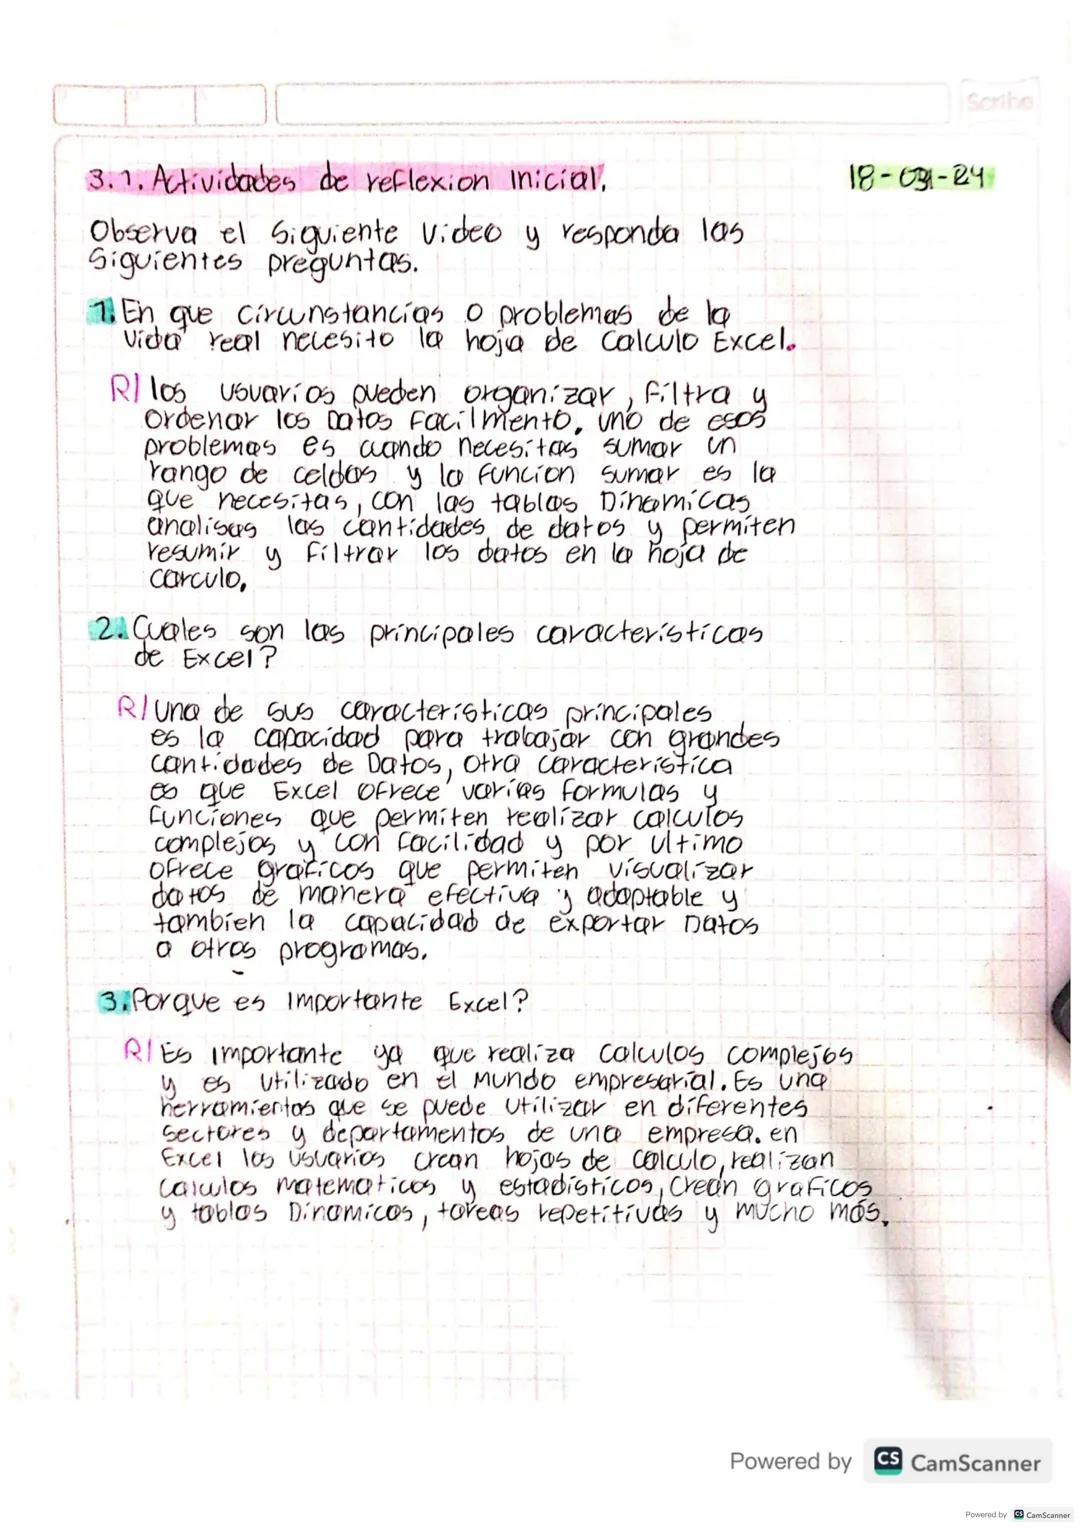 Scribe
3.1. Actividades de reflexion inicial.
Observa el siguiente video y responda las
siguientes preguntas.
1. En que circunstancias o problemas de la
vida real necesito la hoja de Calculo Excel.
R/ los usuarios pueden organizar, filtra y
Ordenar los Datos Facilmento, uno de esos
problemas es cuando necesitas sumar un
rango de celdas y la funcion sumar es la
que necesitas, con las tablas Dinamicas
analisas las cantidades de datos y permiten
resumir y filtrar los datos en la hoja de
carculo,
2. Cuales son las principales caracteristicas
de Excel?
R/ Una de sus caracteristicas principales
es la capacidad para trabajar con grandes
cantidades de Datos, otra caracteristica
es que Excel ofrece varias formulas y
funciones que permiten realizar calculos
complejos y con facilidad y por ultimo
ofrece graficos que permiten visualizar
datos de manera efectiva y adaptable y
tambien la capacidad de exportar Datos
a otros programas.
3. Porque es importante Excel?
R/ Es importante ya que realiza calculos complejos
y es utilizado en el mundo empresarial. Es una
herramientas que se puede utilizar en diferentes
sectores y departamentos de una empresa. en
Excel los usuarios crean hojas de calculo, realizan
calculos matematicos y estadisticos, Crean graficos
y tablas Dinamicas, tareas repetitivas y mucho más.
Powered by CS CamScanner
Powered by CS CamScanner